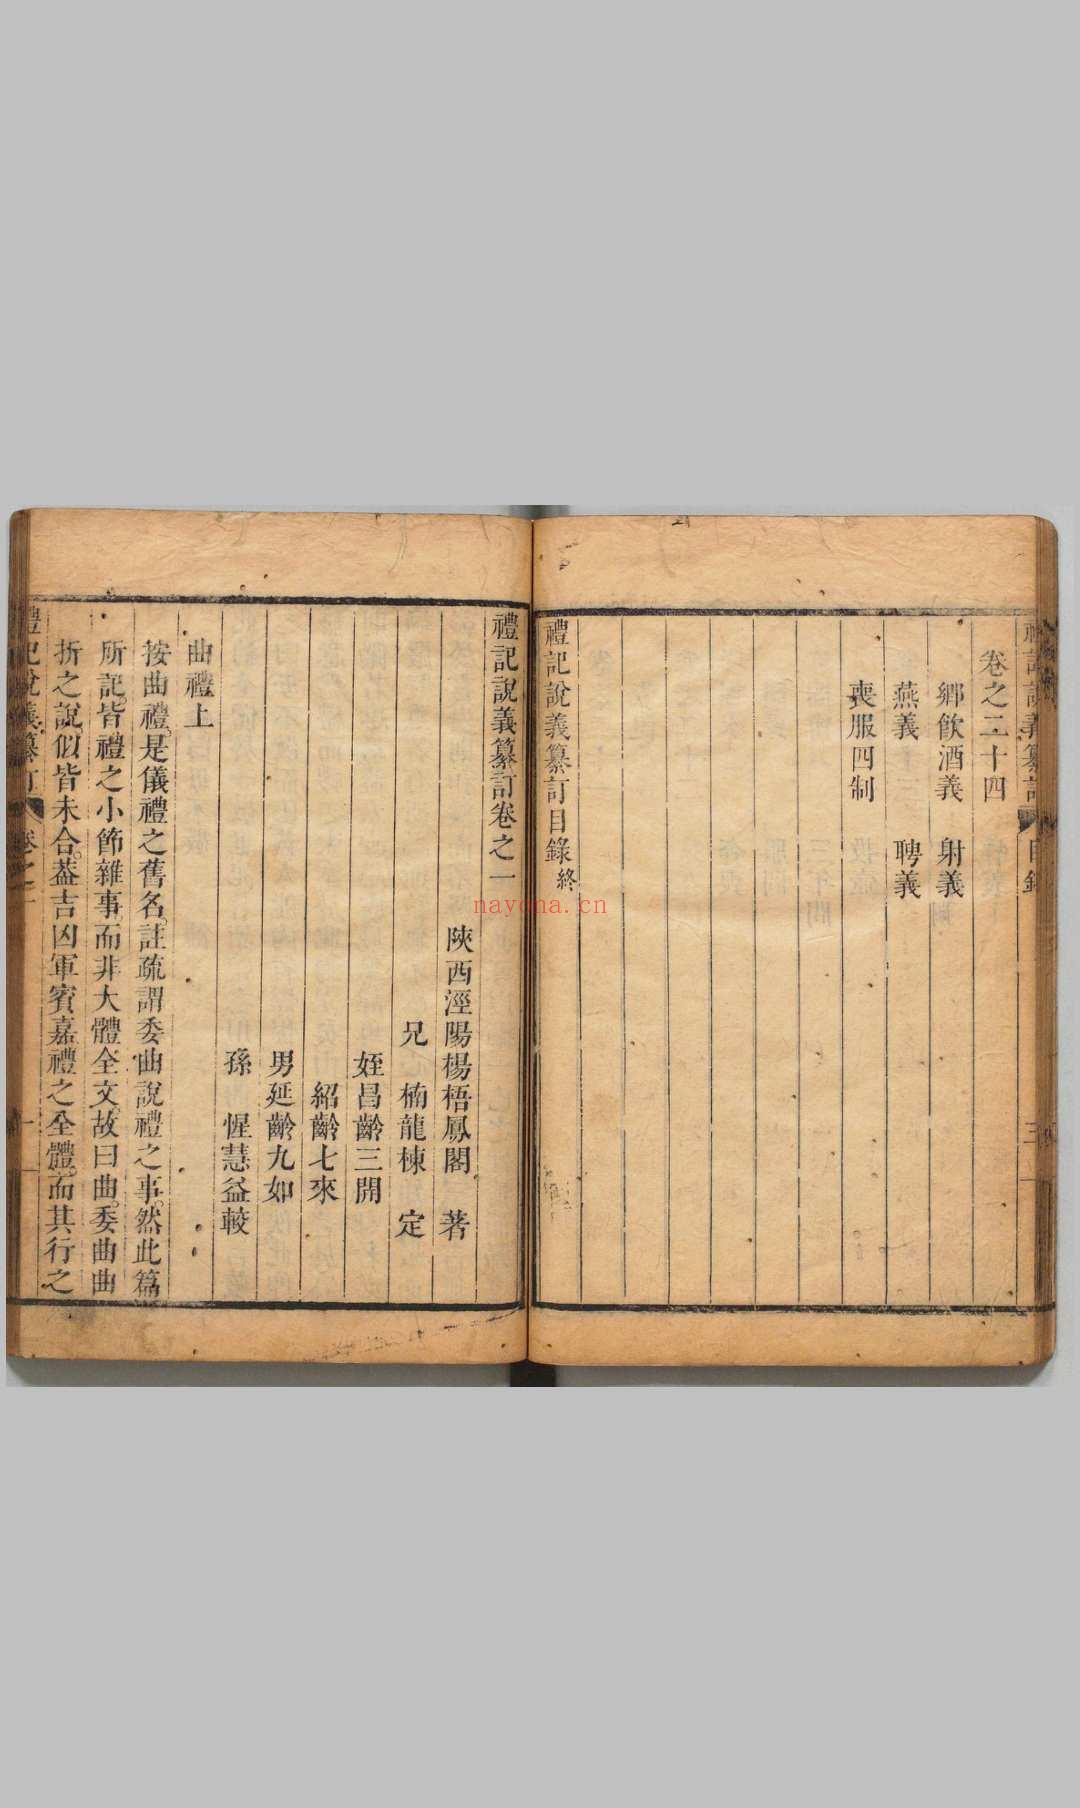 禮記說義纂訂 目錄 三
卷之二十四
鄉飲酒義 射義
燕義 聘義
喪服四制
禮記說義纂訂目錄終
禮記說義纂訂卷之一
陝西涇陽楊梧鳳閣 著
兄 楠龍棟 定
姪昌齡三開
紹齡七來
男延齡九如
孫 惺慧益較
曲禮上
按曲禮。是儀禮之舊名。註疏謂委曲說禮之事。然此篇
所記。皆禮之小節雜事。而非大體全文。故曰曲。委曲曲
折之說。似皆未合。葢吉凶軍賓嘉。禮之全體。而其行之
禮記說義纂訂 卷之一 一
nayona.cn